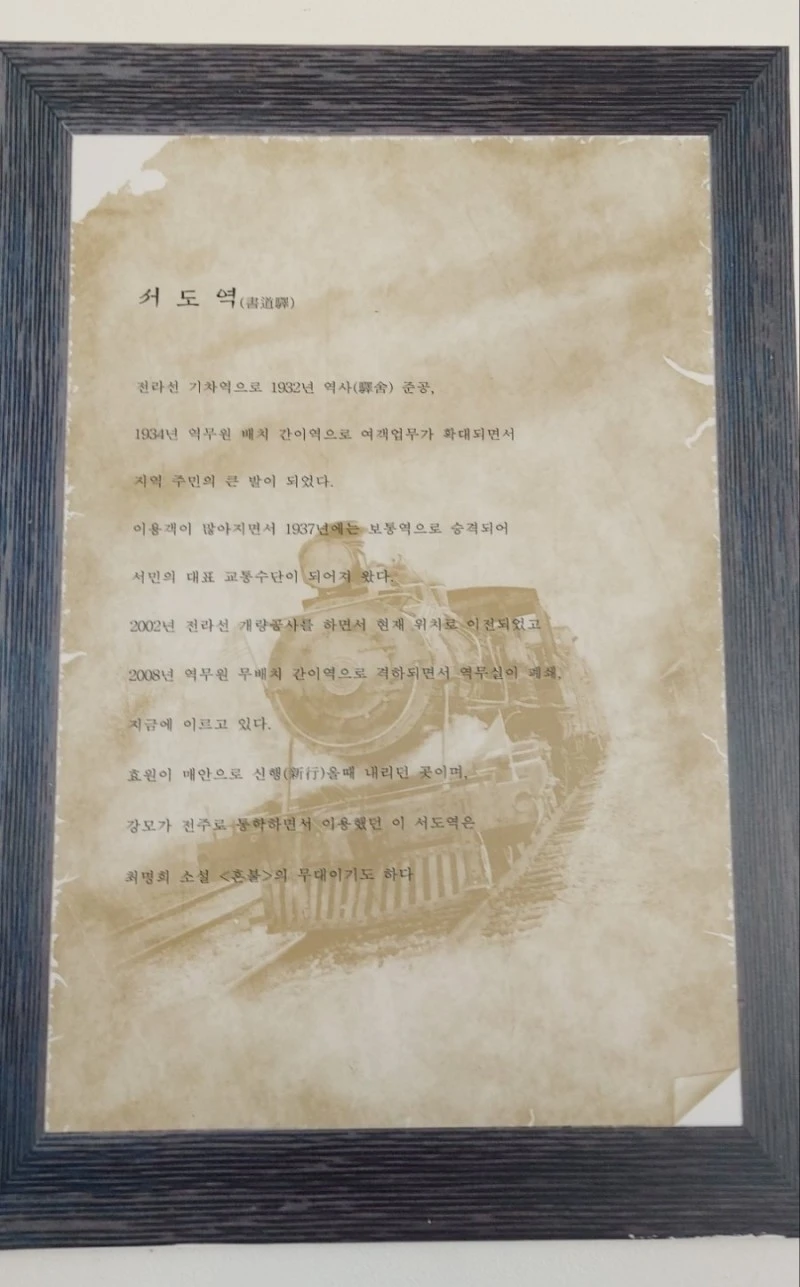 서 도 역(書道驛)
전라선 기차역으로 1932년 역사(驛舍) 준공,
1934년 역무원 배치 간이역으로 여객업무가 확대되면서
지역 주민의 큰 발이 되었다.
이용객이 많아지면서 1937년에는 보통역으로 승격되어
서민의 대표 교통수단이 되어져 왔다.
2002년 전라선 개량공사를 하면서 현재 위치로 이전되었고
2008년 역무원 무배치 간이역으로 격하되면서 역무실이 폐쇄,
지금에 이르고 있다.
효원이 매안으로 신행(新行)올때 내리던 곳이며,
강모가 전주로 통학하면서 이용했던 이 서도역은
최명희 소설 <혼불>의 무대이기도 하다